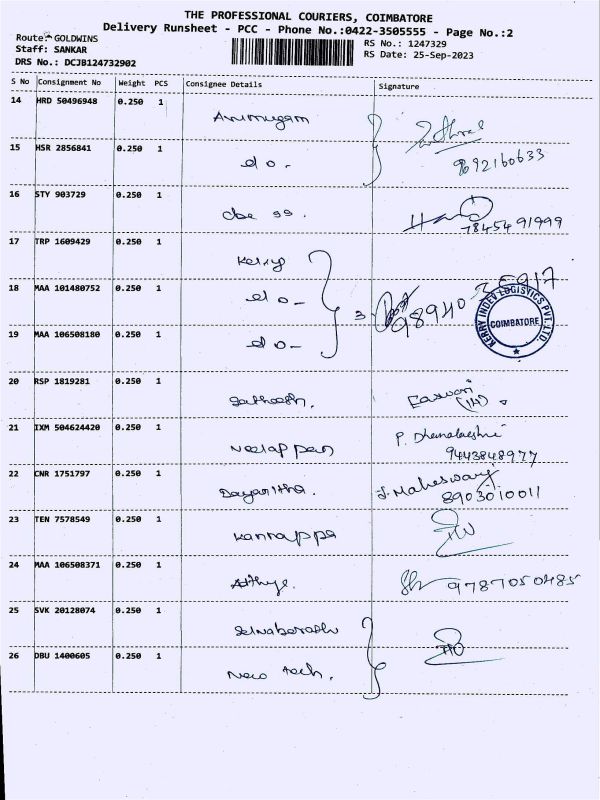 THE PROFESSIONAL COURIERS, COIMBATORE
Delivery Runsheet - PCC - Phone No.:0422-3505555 - Page No.:2
Route: GOLDWINS
RS No.: 1247329
Staff: SANKAR
RS Date: 25-Sep-2023
DRS No.: DCJB124732902
S No Consignment No Weight PCS Consignee Details Signature
14 HRD 50496948 0.250 1 Arumugam
15 HSR 2856841 0.250 1 do - 9692160633
16 STY 903729 0.250 1 cbe 99.
7845491999
17 TRP 1609429 0.250 1 Kerry
18 MAA 101480752 0.250 1 do - 3
KERRY INDEV LOGISTICS PVT. LTD.
COIMBATORE
19 MAA 106508180 0.250 1 do -
20 RSP 1819281 0.250 1 Satheesh. Easwari
21 IXM 504624420 0.250 1 Neelappan P. Dhanalakshmi
9443848977
22 CNR 1751797 0.250 1 Dayanitha. J. Maheswary
8903010011
23 TEN 7578549 0.250 1 Kannappa
24 MAA 106508371 0.250 1 9787050485
25 SVK 20128074 0.250 1 Selvabarathi
26 DBU 1400605 0.250 1 New tech.